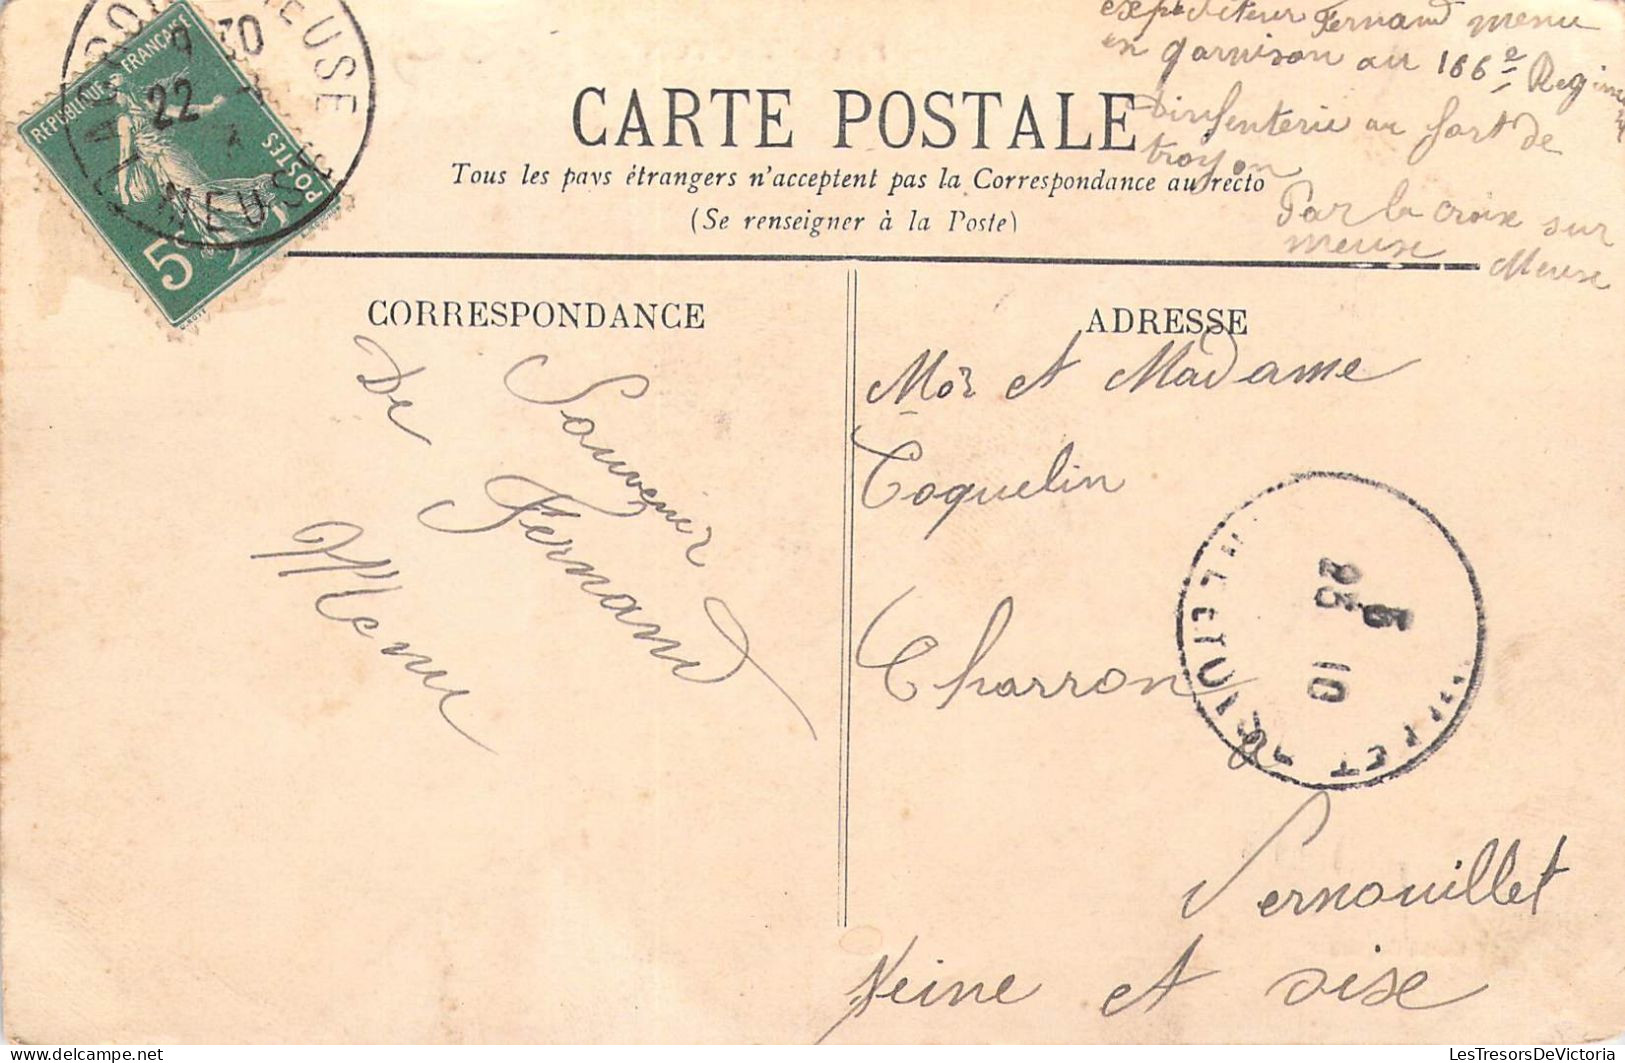 expéditeur Fernand menu
en garnison au 166e Regiment
dinfenterie au fort de
troyon
Par la croix sur
meuse Meuse
CARTE POSTALE
Tous les pays étrangers n'acceptent pas la Correspondance au recto
(Se renseigner à la Poste)
REPUBLIQUE FRANÇAISE
POSTES
5
LACROIX S MEUSE
9 30
22
MEUSE
CORRESPONDANCE
Souvenir
De Fernand
Menu
ADRESSE
Mor et Madame
Coquelin
Charron
a
Vernouillet
Seine et oise
5
25 10
SEINE ET OISE
LesTresorsDeVictoria
www.delcampe.net